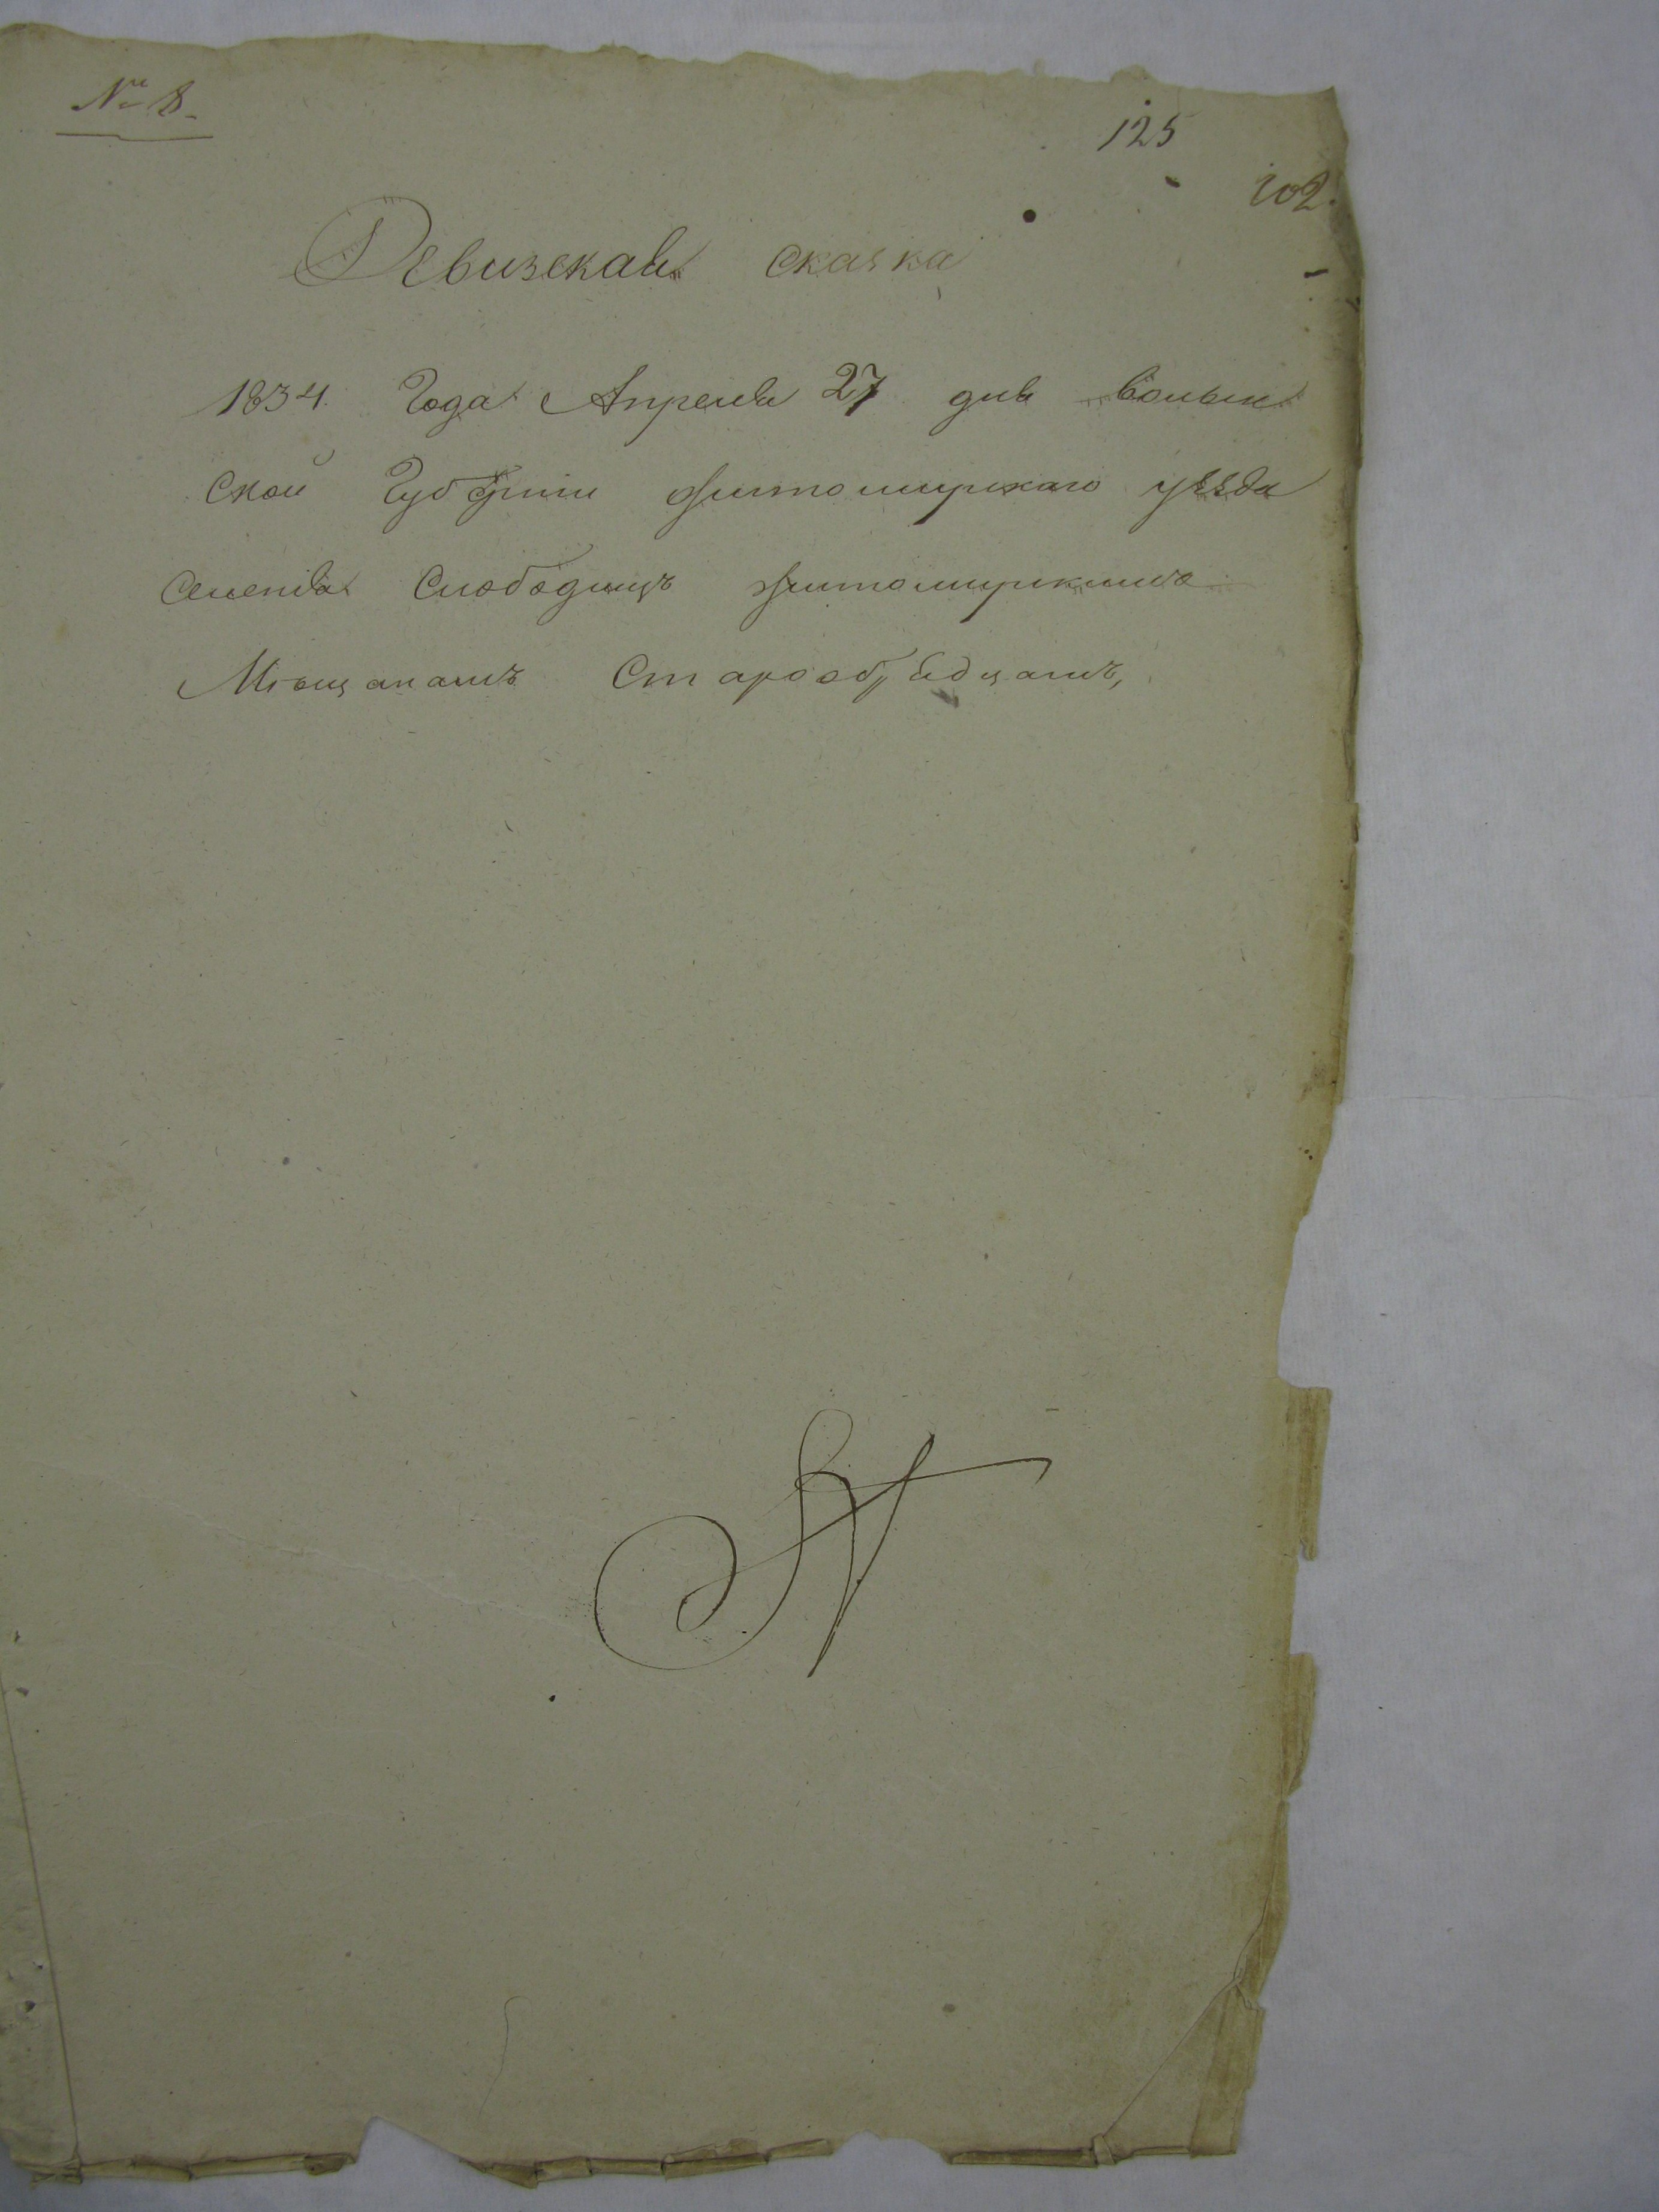 № 8.
125
102.
Ревизская скаска
1834 Года Апреля 27 дня волын
ской Губернии житомирскаго уезда
Селения Слободищъ житомирскимъ
Мѣщанамъ Старообрядцамъ,